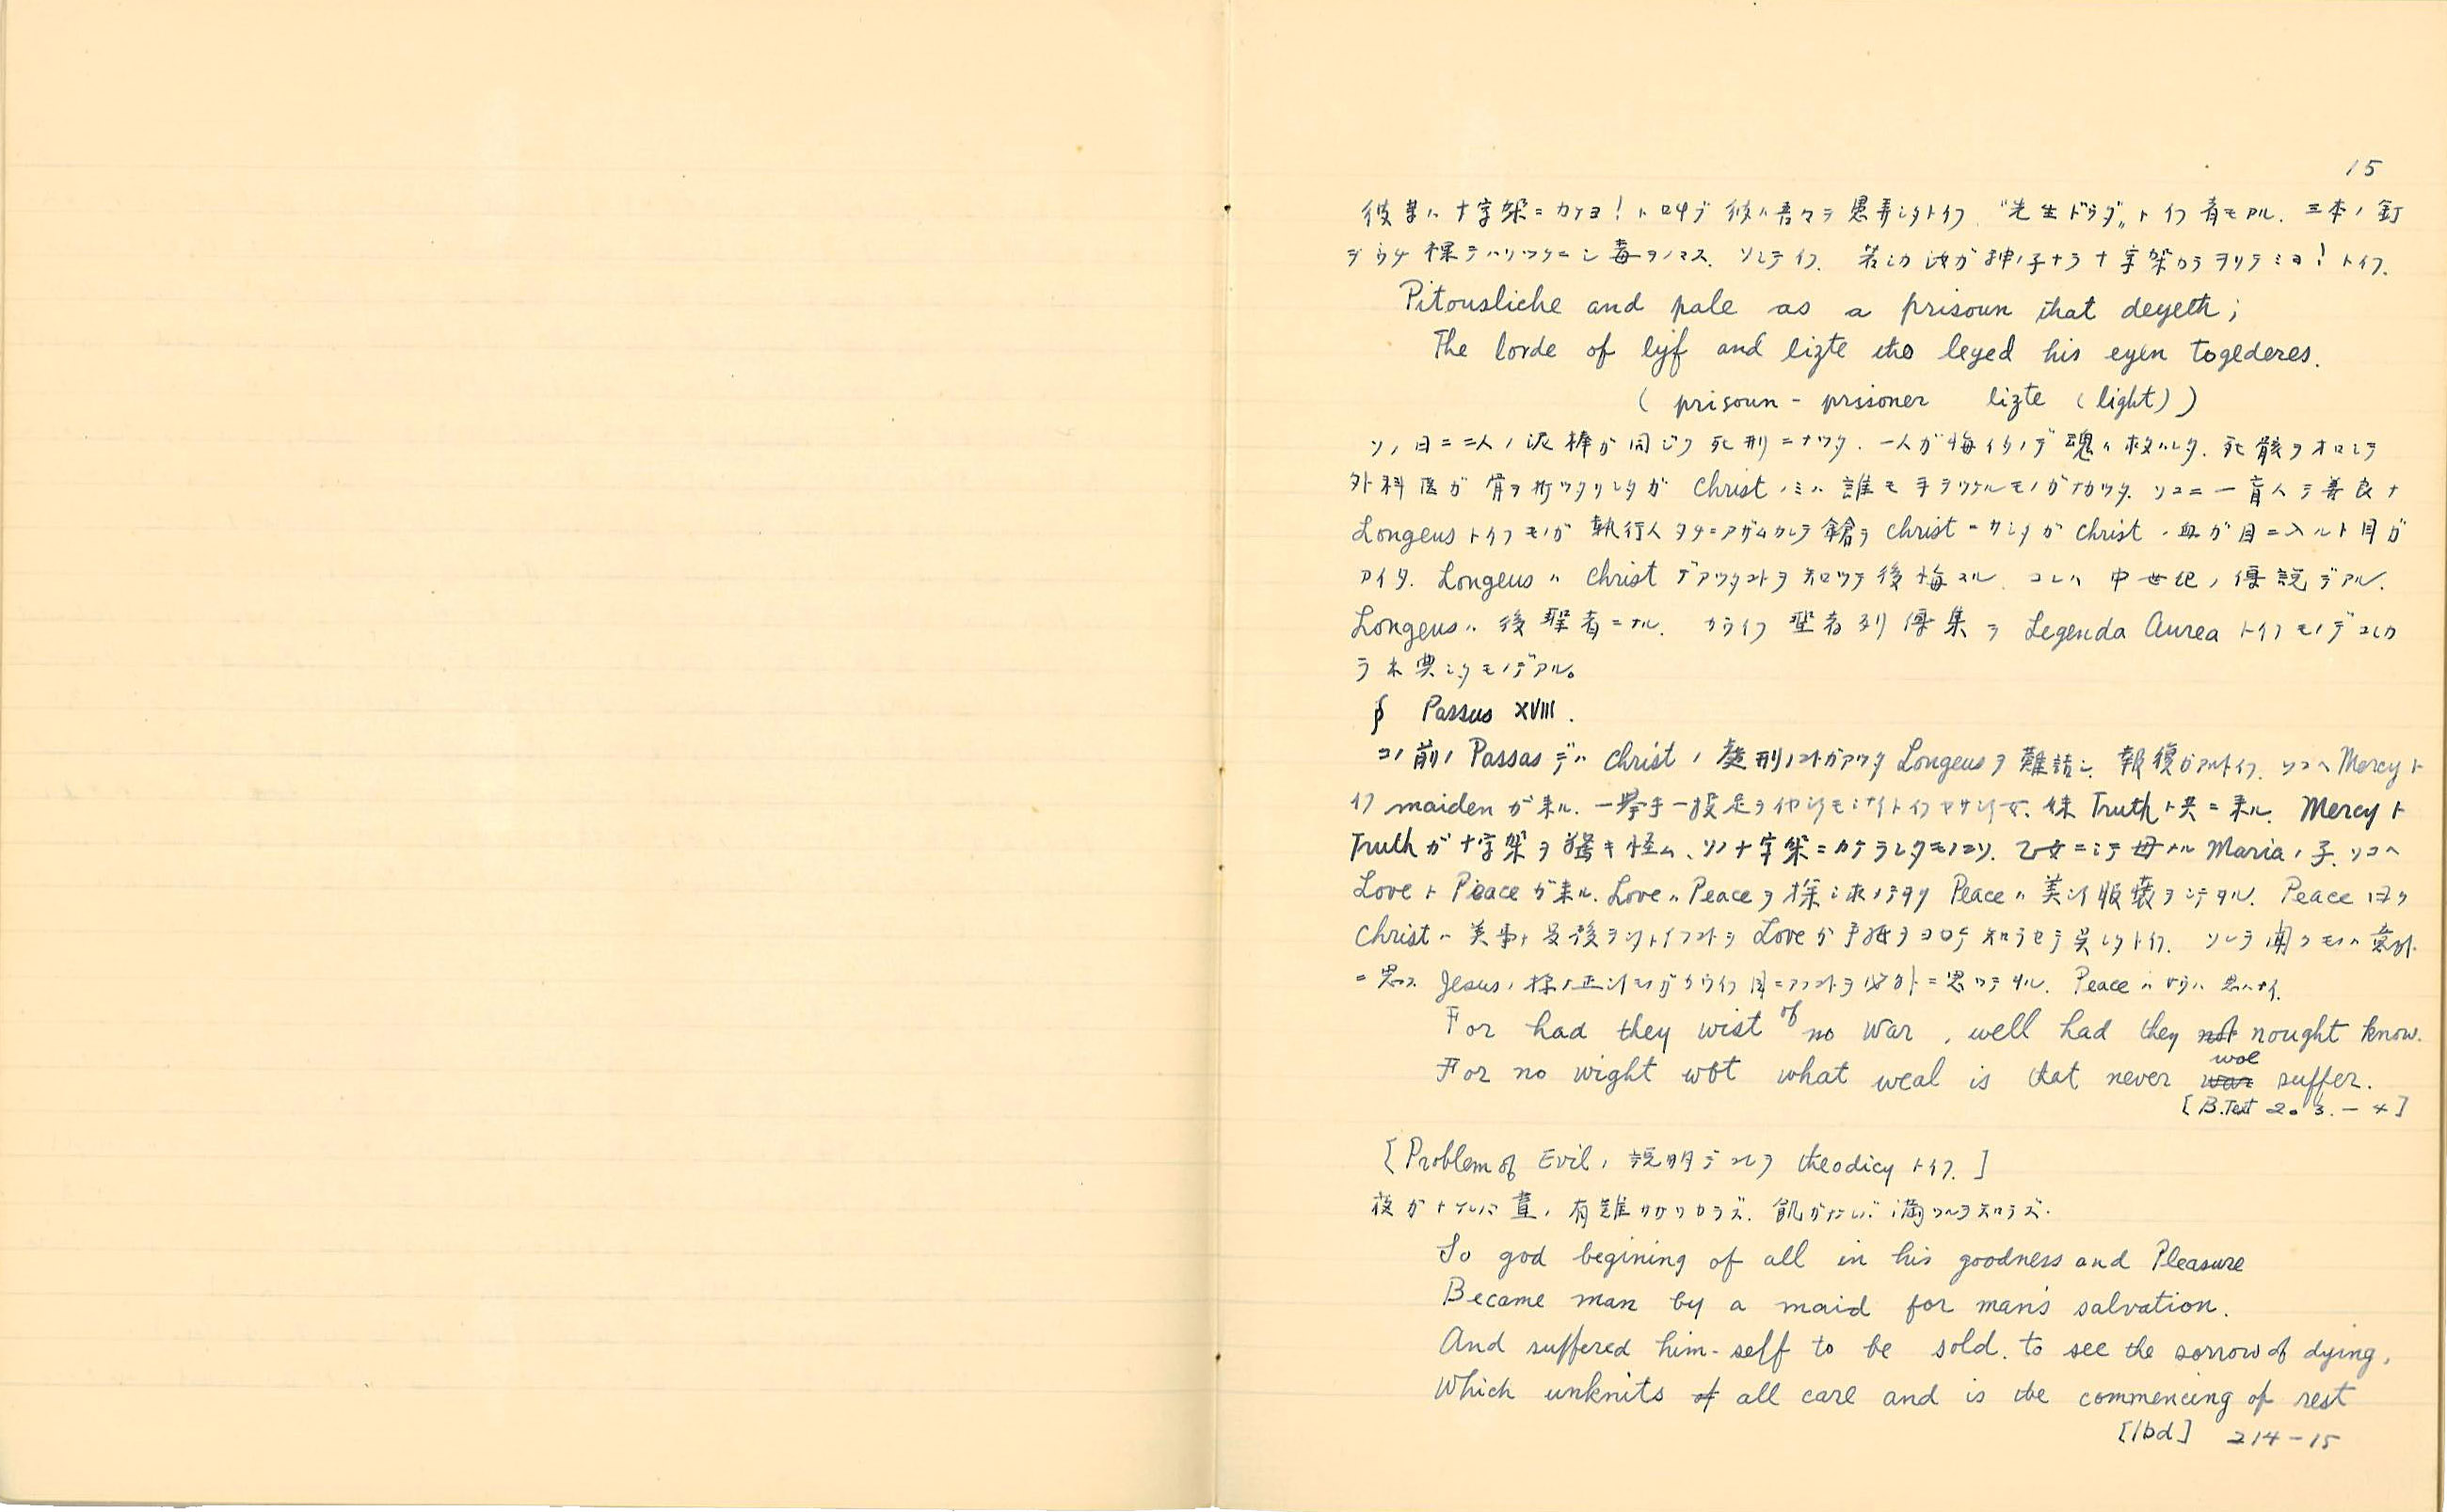 15
彼等ハ十字架ニカケヨ！ト叫ブ 彼ハ吾々ヲ愚弄シタトイフ. "先生ドウダ„トイフ者モアル. 三本ノ釘
デウチ裸デハリツケニシ毒ヲノマス. ソシテイフ. 若シカ汝ガ神ノ子ナラ十字架カラヲリテミヨ！トイフ.
Pitousliche and pale as a prisoun that deyeth;
The lorde of lyf and lizte tho leyed his eyen togederes.
( prisoun - prisoner lizte (light))
ソノ日ニ二人ノ泥棒ガ同ジク死刑ニナツタ. 一人ガ悔イタノデ魂ハ救ハレタ. 死骸ヲオロシテ
外科医ガ骨ヲ折ツタリシタガ Christ ノミハ誰モ手ヲツケルモノガナカツタ. ソコニ一盲人デ善良ナ
Longeus トイフモノガ執行人タチニアザムカレテ鎗ヲ Christ ニサシタガ Christ ノ血ガ目ニ入ルト目ガ
アイタ. Longeus ハ Christ デアツタコトヲ知ツテ後悔スル. コレハ中世紀ノ傳説デアル.
Longeus ハ後聖者ニナル. カライフ聖者列傳集ヲ Legenda Aurea トイフモノデコレカ
ラ来タモノデアル。
§ Passus XVIII.
コノ前ノ Passas デハ Christ ノ処刑ノコトガアツタ Longeus ヲ難詰シ、報復ガアルトイフ. ソコヘ Mercy ト
イフ maiden ガ来ル. 一挙手一投足ヲイヤシクモシナイトイフヤサシイ女、妹 Truth ト共ニ来ル. Mercy ト
Truth ガ十字架ヲ驚キ怪ム、ソノ十字架ニカケラレタモノコソ. 乙女ニシテ母ナル Maria ノ子. ソコヘ
Love ト Peace ガ来ル. Love ハ Peace ヲ探シ求メテヲリ Peace ハ美シイ服装ヲシテヰル. Peace 曰ク
Christ ハ美事ナ最後ヲシタトイフコトヲ Love ガ手紙ヲヨコシテ知ラセテ呉レタトイフ. ソレヲ聞クモノハ意外
ニ思フ. Jesus ノ様ナ正シイモノガカウイフ目ニアフコトヲ意外ニ思ツテヰル. Peace ハサウハ思ハナイ.
For had they wist of no war, well had they not nought know.
For no wight wot what weal is that never war woe suffer.
[B.Text 203.-4]
[Problem of Evil ノ説明デコレヲ theodicy トイフ.]
夜ガナケレバ昼ノ有難サガワカラズ. 飢ガナケレバ満ツルヲ知ラズ.
So god begining of all in his goodness and Pleasure
Became man by a maid for man's salvation.
And suffered him-self to be sold. to see the sorrow of dying,
Which unknits of all care and is the commencing of rest
[Ibd] 214-15